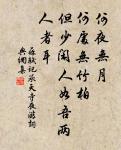 何夜無月
何處無竹柏
但少閑人如吾兩
人者耳
蘇軾記承天寺夜遊詞
與綱集